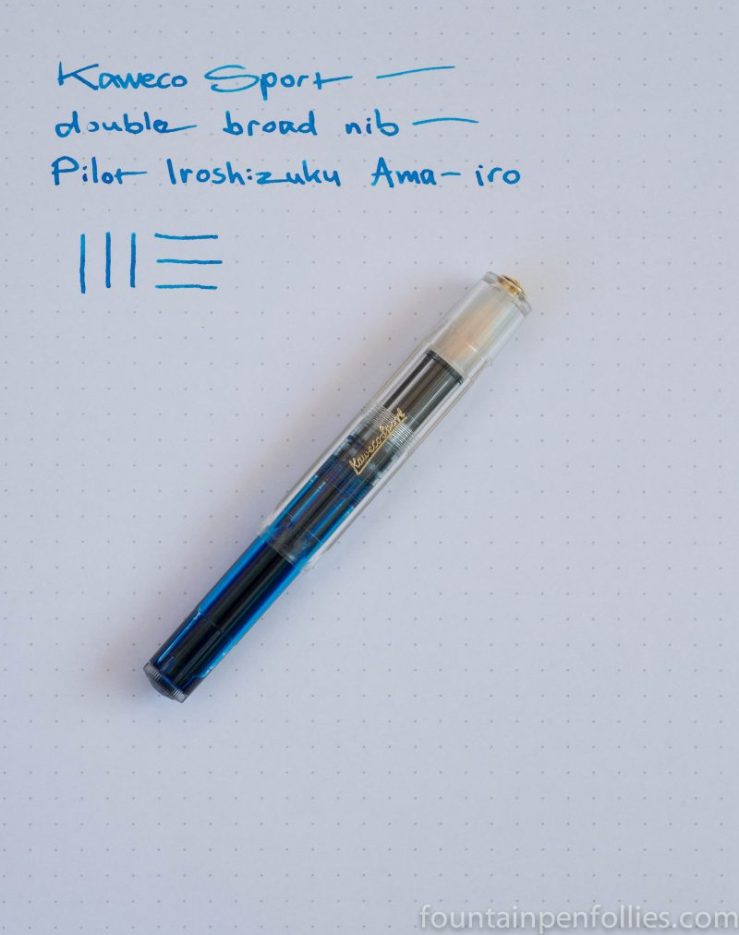 Kaweco Sport
double broad nib
Pilot Iroshizuku Ama-iro
Kaweco Sport
fountainpenfollies.com